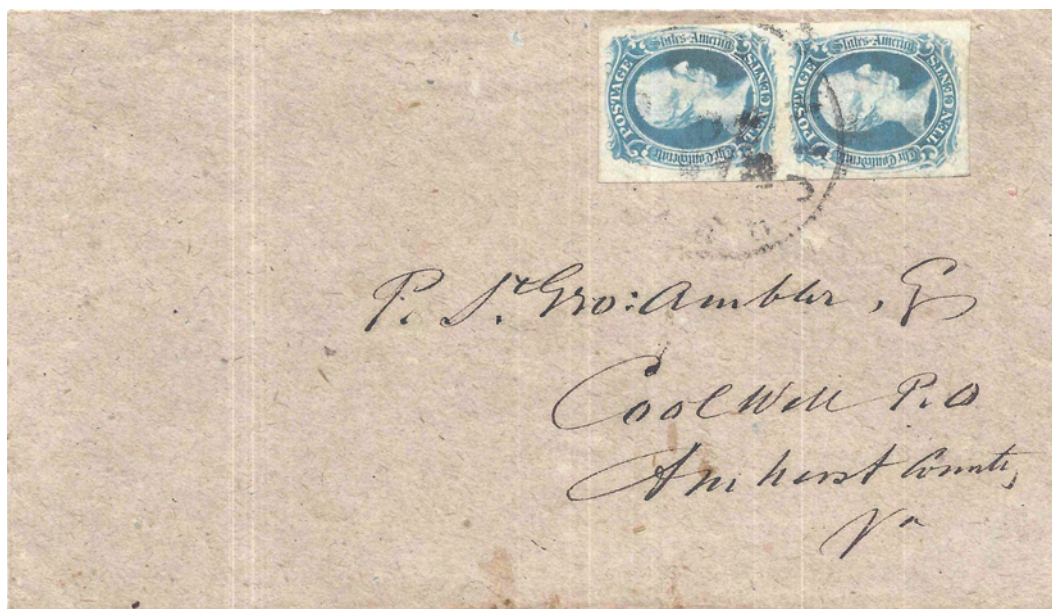 The Confederate States America
POSTAGE
TEN CENTS
The Confederate States America
POSTAGE
TEN CENTS
P. St. Geo: Ambler, Esq
Coolwell P.O
Amherst County,
Va